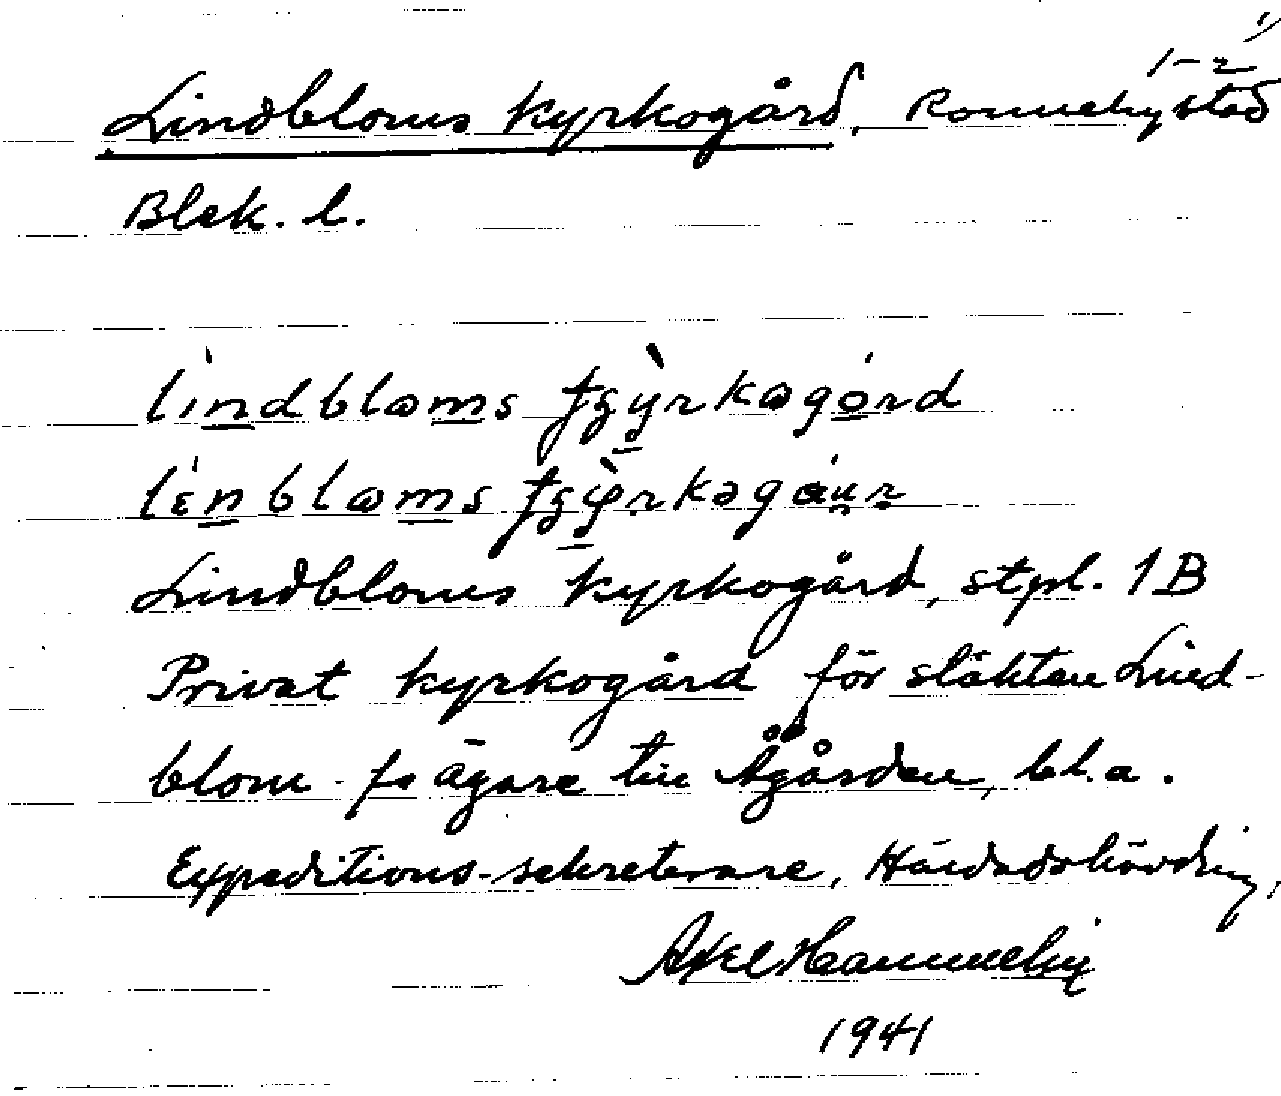 1-2 1)
Lindbloms kyrkogård, Ronneby stad
Blek. l.
lindblɷms tʒyrkɷgo̱rd
lɛnblɷms tʒyrkəgau̯r
Lindbloms kyrkogård, stpl. 1B
Privat kyrkogård för släkten Lind-
blom - fo ägare till Ågården, bl.a.
Expeditions-sekreterare, Häradshövding,
Axel Hammeby
1941